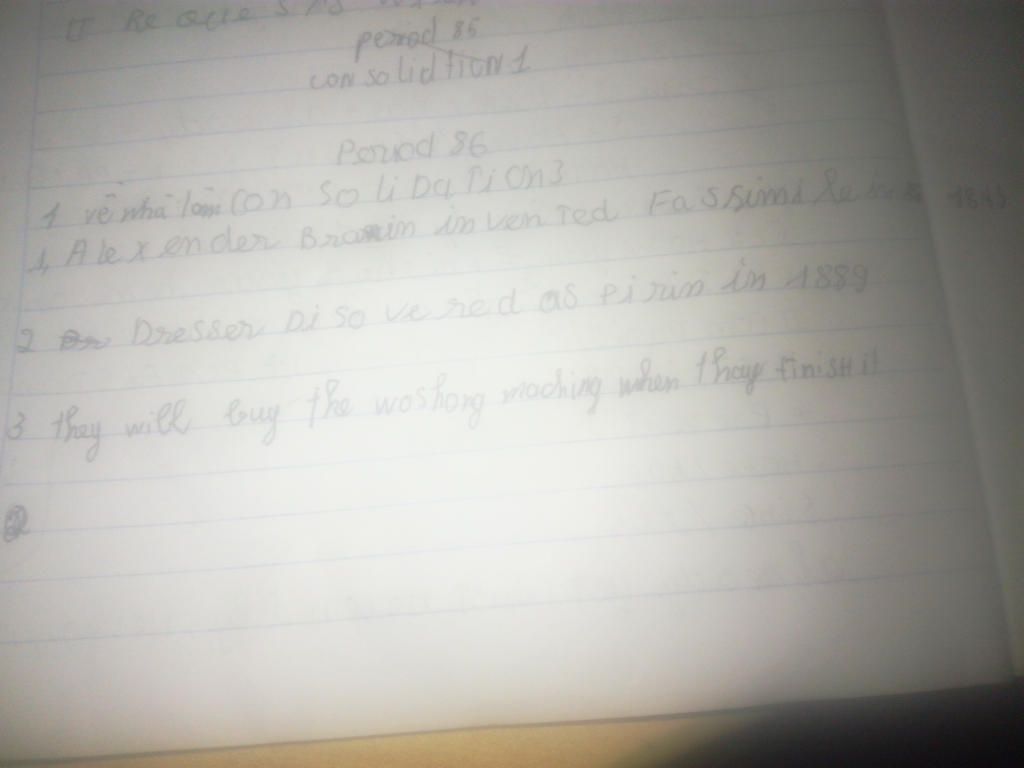 II Re que
period 86
con solidtion 1
Period 86
1 về nhà làm Con So li Da Ti On 3
1, Alexender Brain in ven Ted Fa Ssimile in 1843
2 Dresser Di so ve red as pirin in 1889
3 they will buy the woshong maching when thay finish it